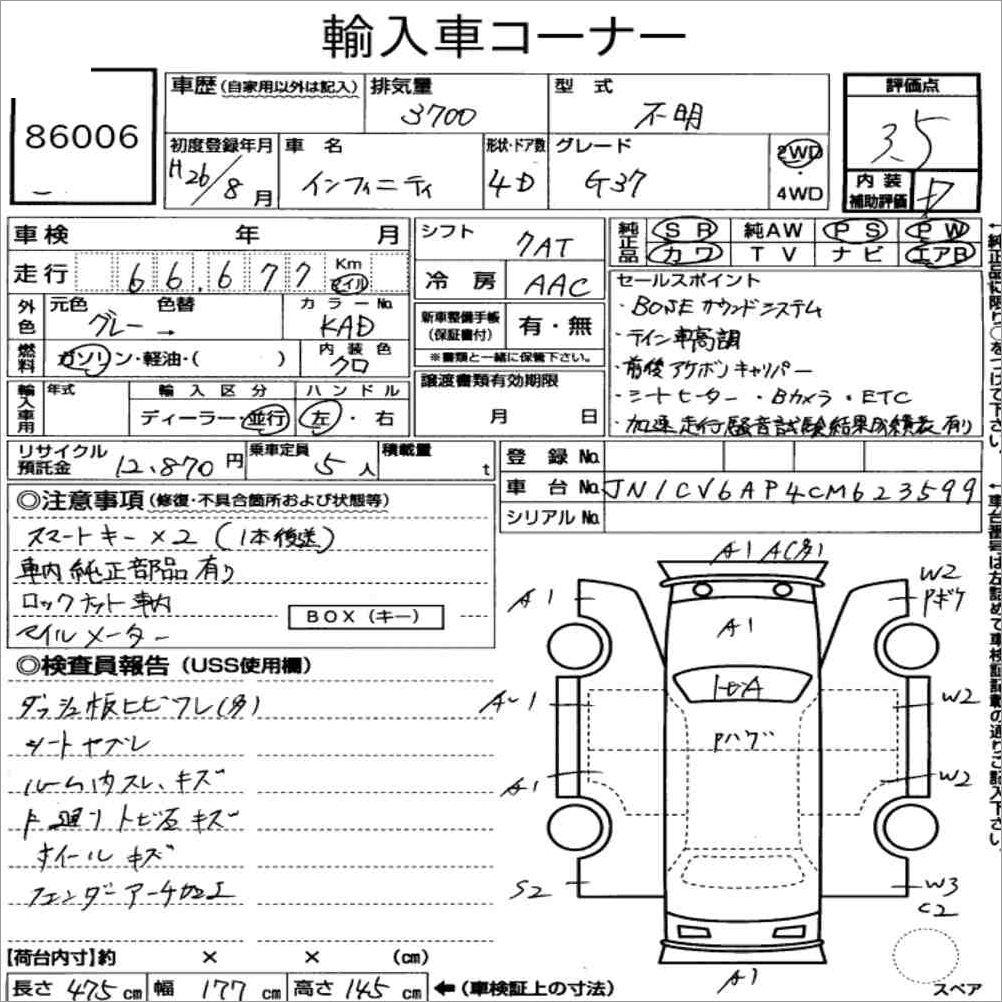 輸入車コーナー
86006
車歴(自家用以外は記入)
排気量
3700
型 式
不明
評価点
3.5
初度登録年月
H26/8月
車 名
インフィニティ
形状・ドア数
4D
グレード
G37
2WD
・
4WD
内 装
補助評価
D
車検 年 月
走行 66,677 Km マイル
シフト
7AT
冷 房
AAC
純正品
SR 純AW PS PW
カワ TV ナビ エアB
外色
元色 色替
グレー→
カラーNo.
KAD
燃料
ガソリン・軽油・( )
内 装 色
クロ
新車整備手帳
(保証書付)
有・無
※書類と一緒に保管下さい。
セールスポイント
・BOSEサウンドシステム
・テイン車高調
・前後アケボノキャリパー
・シートヒーター ・Bカメラ ・ETC
・加速走行騒音試験結果成績表有り
輸入車用
年式
輸 入 区 分
ディーラー・並行
ハ ン ド ル
左・右
譲渡書類有効期限
月 日
リサイクル
預託金
12,870円
乗車定員
5人
積載量
t
登 録 No.
車 台 No. JN1CV6AP4CM623599
シリアルNo.
◎注意事項(修復・不具合箇所および状態等)
スマートキー×2 (1本後送)
車内純正部品有り
ロックナット車内
マイルメーター
BOX(キー)
◎検査員報告(USS使用欄)
ダッシュ板ヒビワレ(多)
シートヤブレ
ルーム内スレ、キズ
下廻りトビ石キズ
ホイールキズ
フェンダーアーチ加工
A1 A(多)
A1
W2
Pボケ
A1
トビA
A1
W2
Pハゲ
A1
W2
S2
W3
C2
A1
スペア
【荷台内寸】約 × × (cm)
長さ 475cm 幅 177cm 高さ 145cm ←(車検証上の寸法)
←純正品に限り○をつけて下さい。
←車台番号は左詰めで車検証記載の通りご記入下さい。